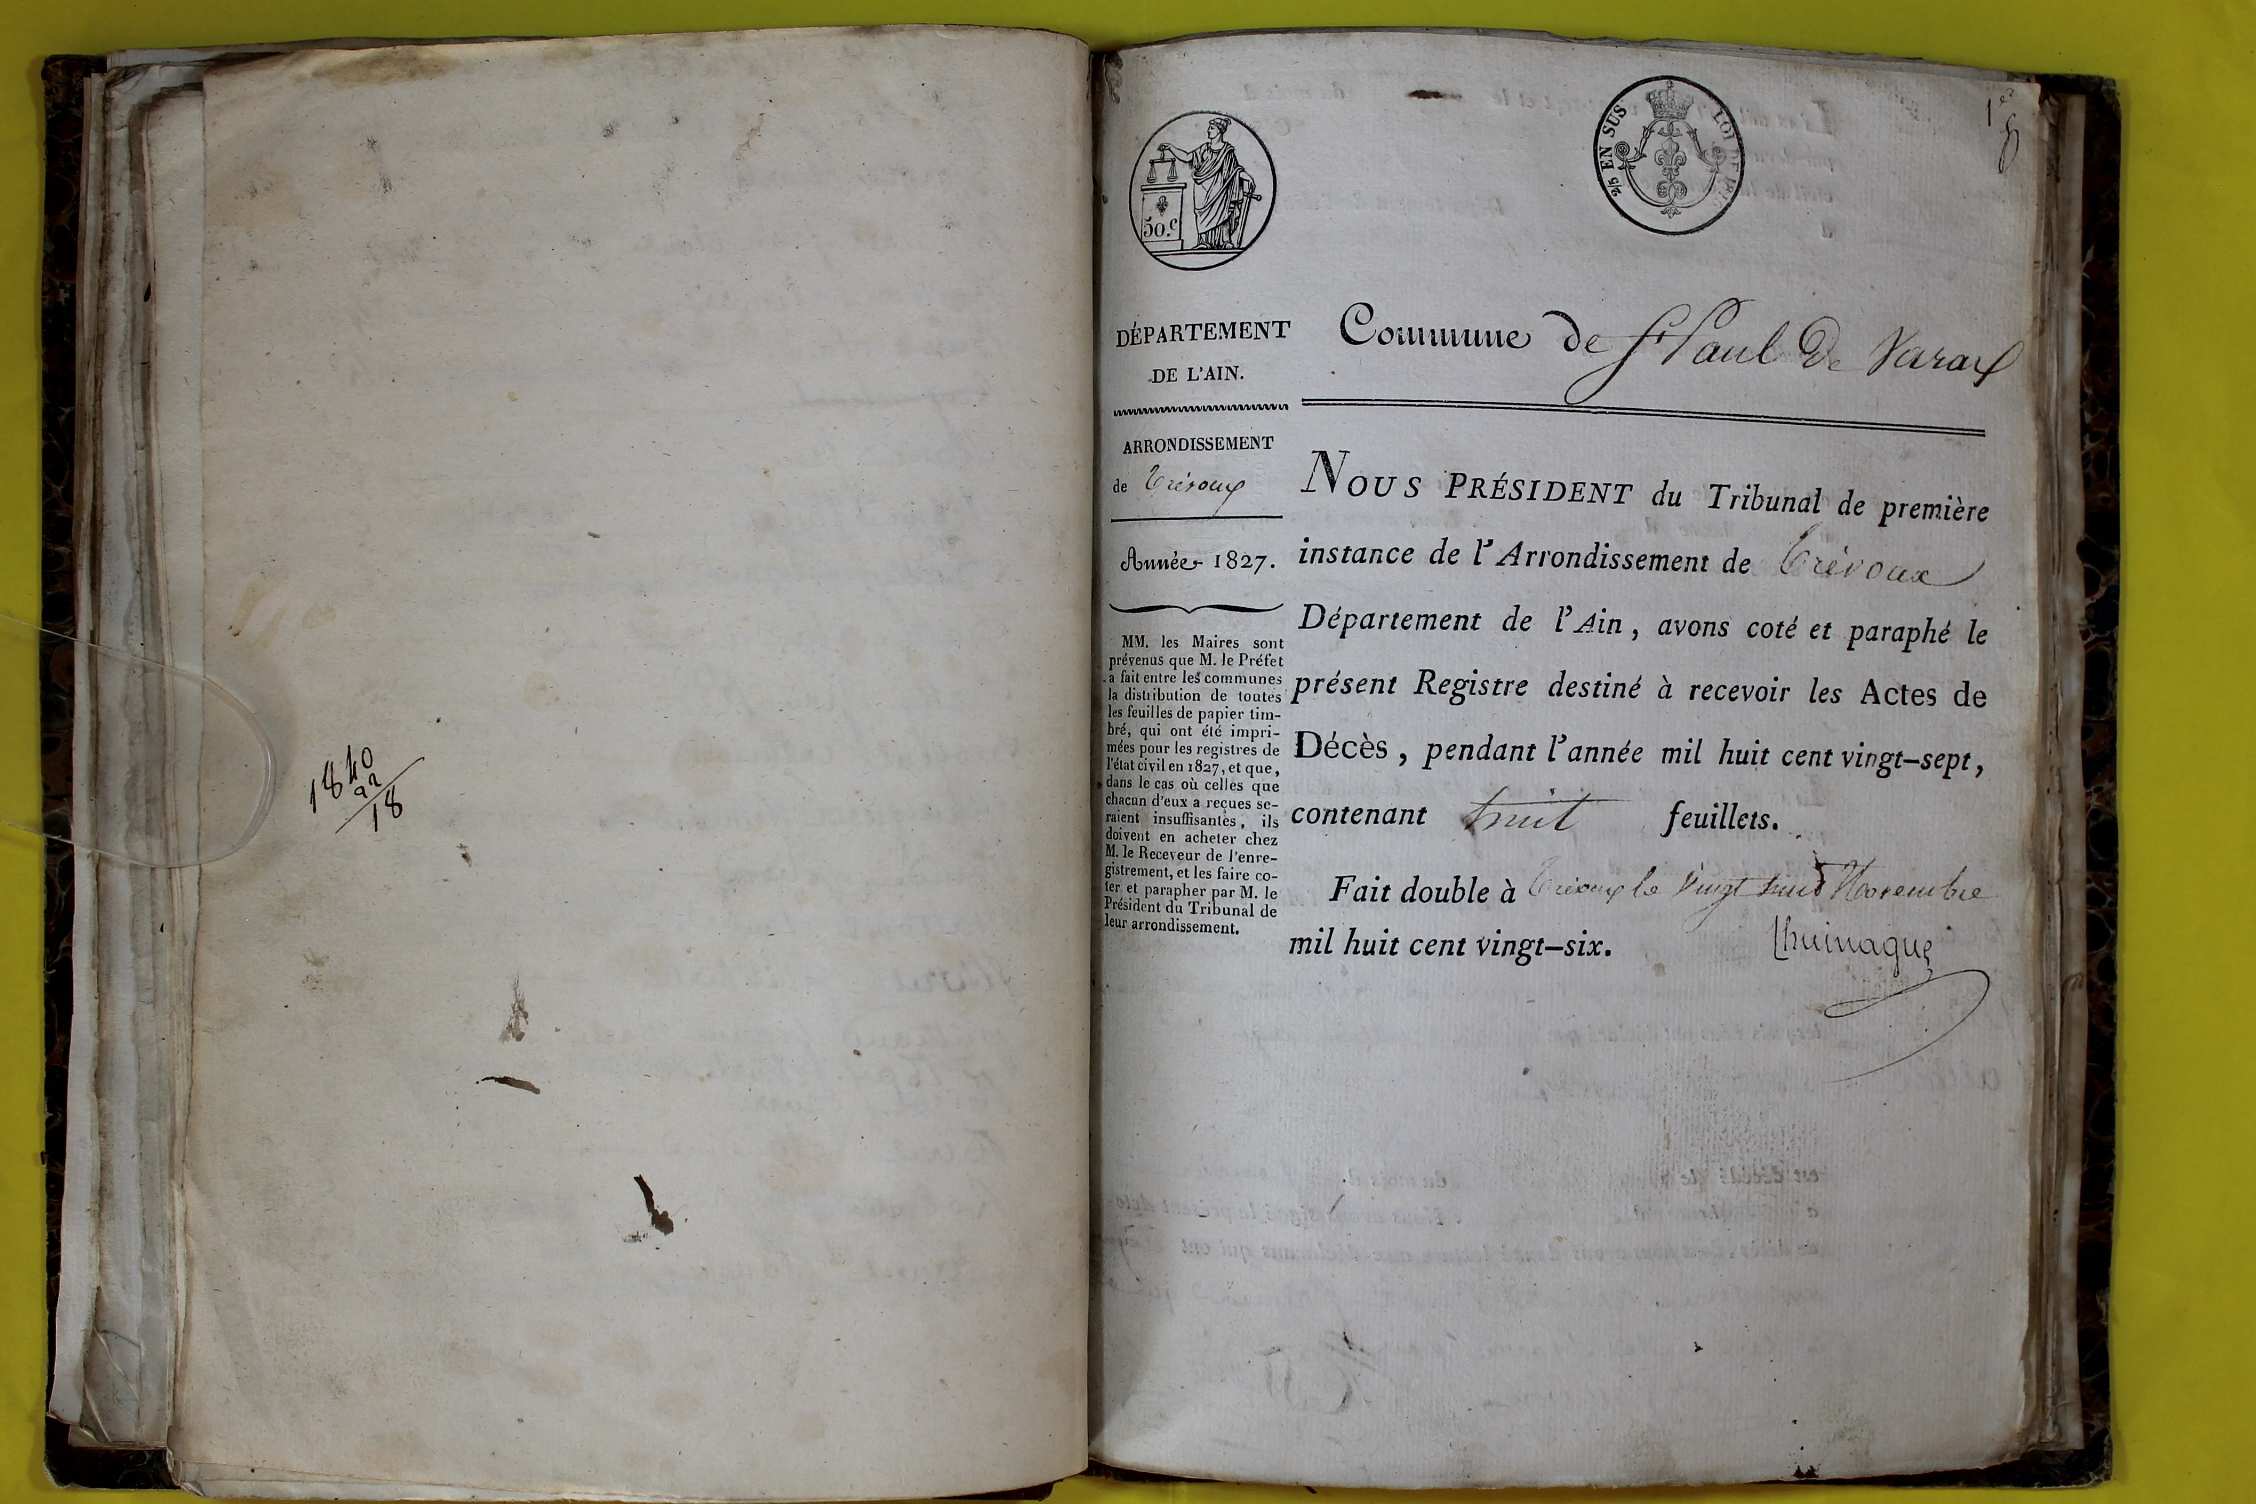 1840
22
18
1er
50.c
2/5 EN SUS
LOI DE
DÉPARTEMENT
DE L'AIN.
ARRONDISSEMENT
de Trévoux
Année 1827.
MM. les Maires sont
prévenus que M. le Préfet
a fait entre les communes
la distribution de toutes
les feuilles de papier tim-
bré, qui ont été impri-
mées pour les registres de
l'état civil en 1827, et que,
dans le cas où celles que
chacun d'eux a reçues se-
raient insuffisantes, ils
doivent en acheter chez
M. le Receveur de l'enre-
gistrement, et les faire co-
ter et parapher par M. le
Président du Tribunal de
leur arrondissement.
Commune de St Paul de Varax
NOUS PRÉSIDENT du Tribunal de première
instance de l'Arrondissement de Trévoux
Département de l'Ain, avons coté et paraphé le
présent Registre destiné à recevoir les Actes de
Décès, pendant l'année mil huit cent vingt-sept,
contenant huit feuillets.
Fait double à Trévoux le vingt huit Novembre
mil huit cent vingt-six.